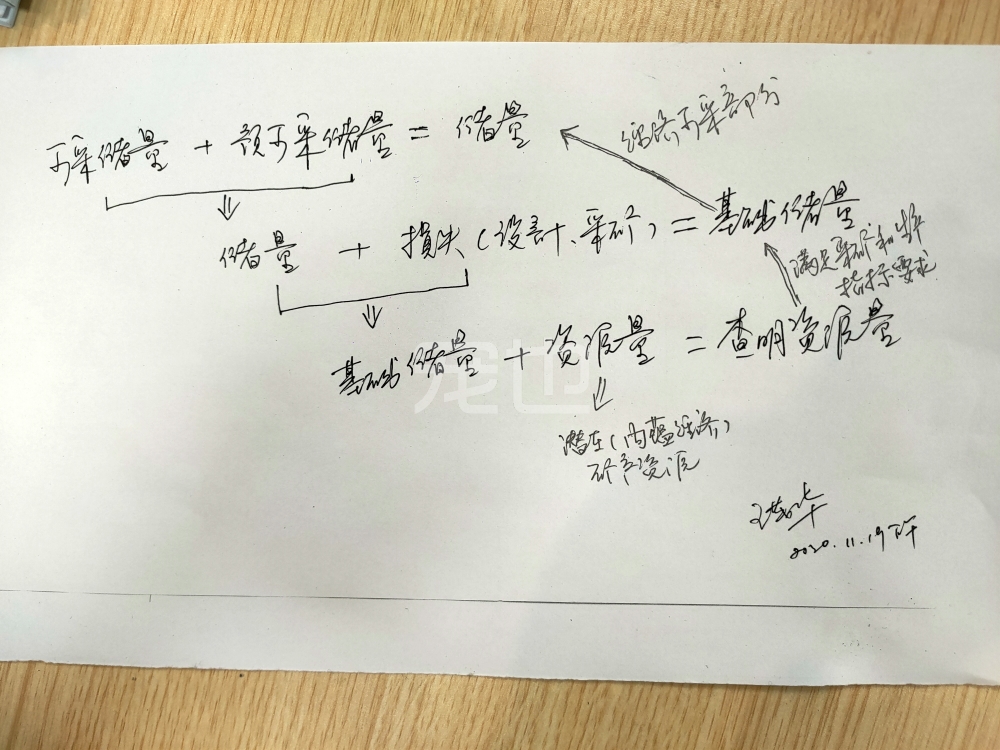 可采储量 + 预可采储量 = 储量
经济可采部分
储量 + 损失(设计、采矿) = 基础储量
满足采矿和生产
指标要求
基础储量 + 资源量 = 查明资源量
潜在(内蕴经济)
矿产资源
2020.11.19 下午